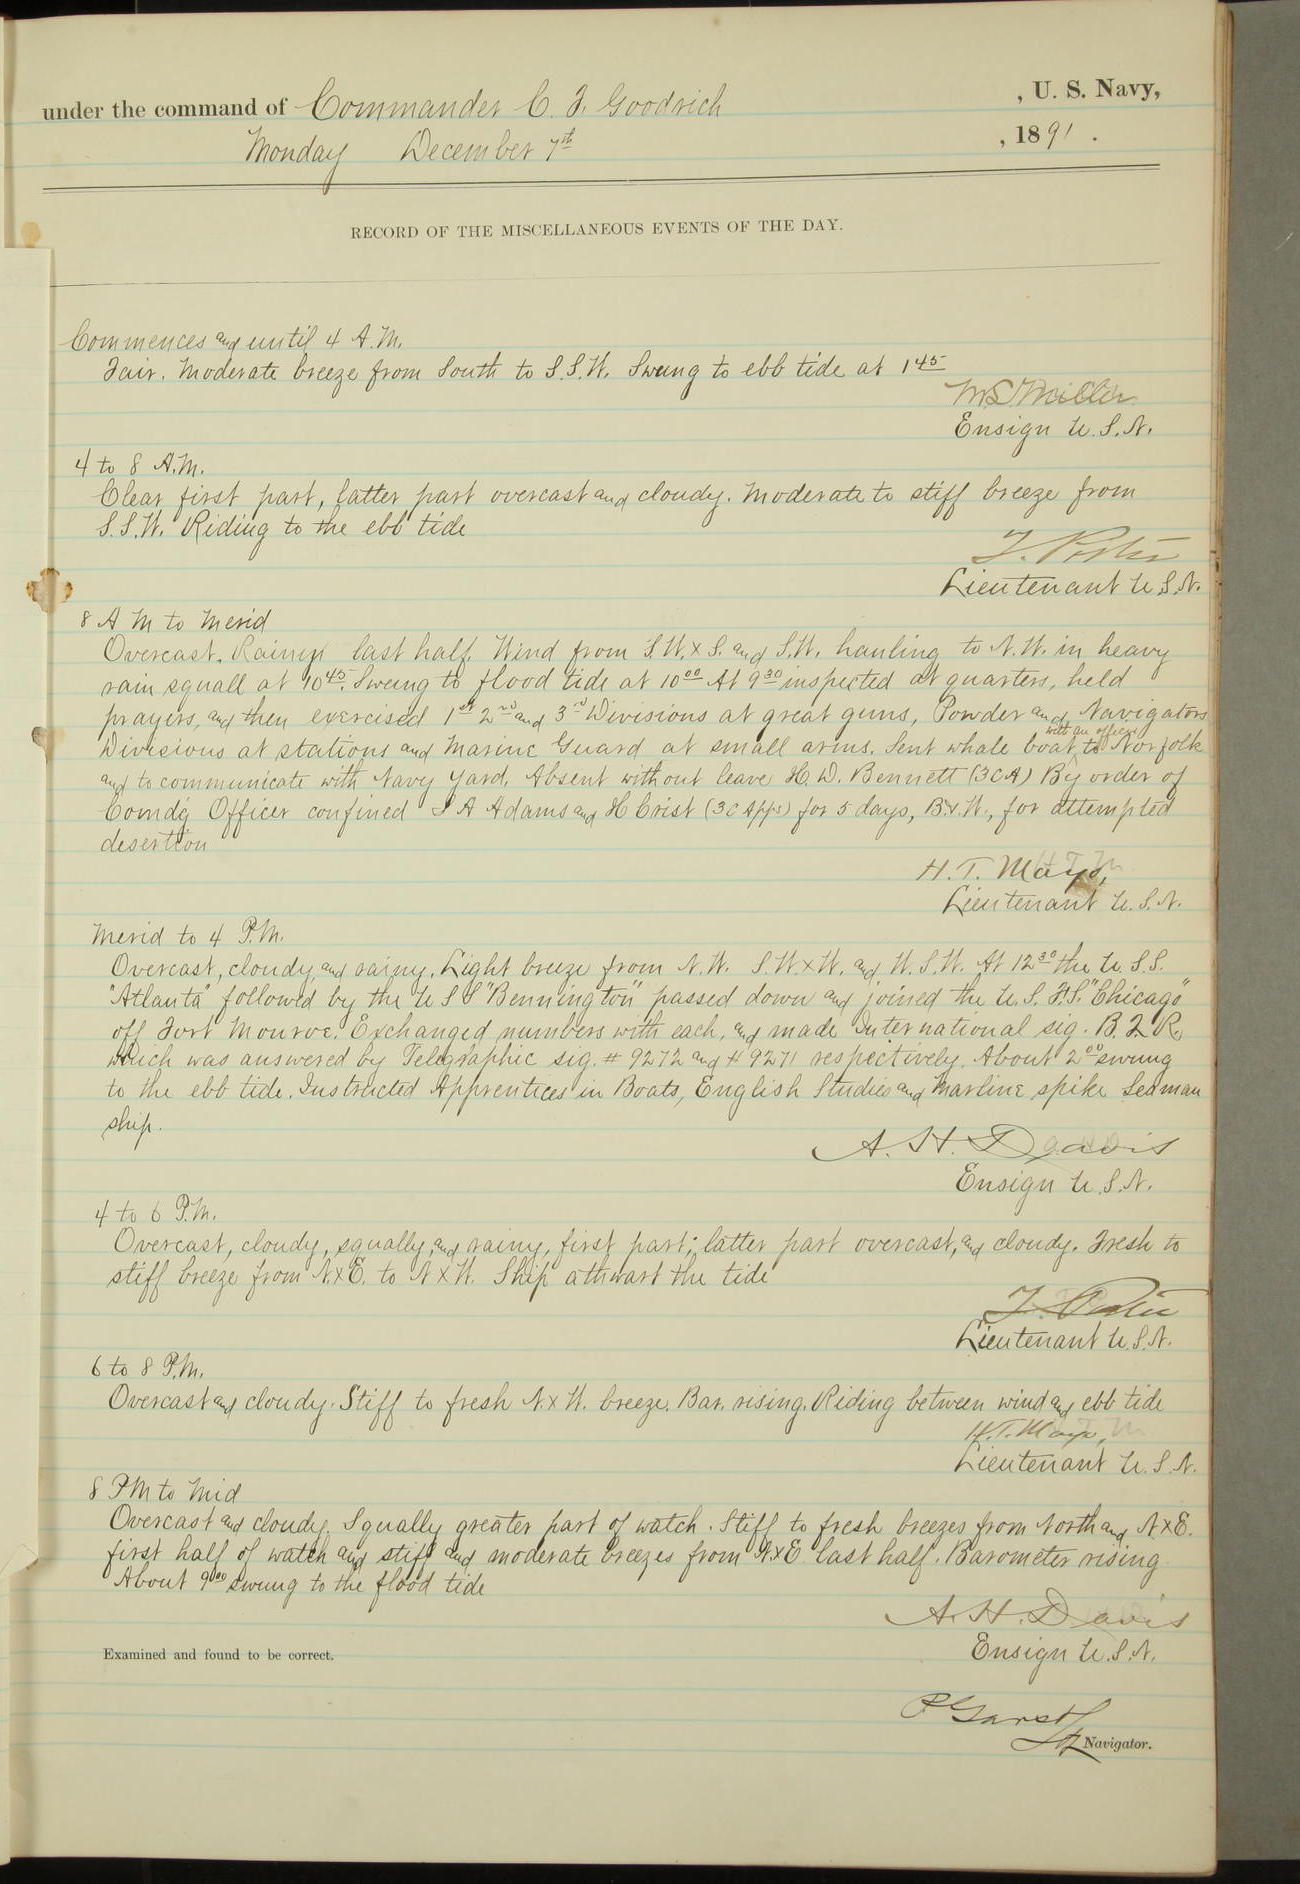 under the command of Commander C. F. Goodrich , U. S. Navy,
Monday December 7th , 1891 .
RECORD OF THE MISCELLANEOUS EVENTS OF THE DAY.
Commences and until 4 A.M.
Fair. Moderate breeze from South to S.S.W. Swung to ebb tide at 1 45
Miller
Ensign U.S.N.
4 to 8 A.M.
Clear first part, latter part overcast and cloudy. Moderate to stiff breeze from
S.S.W. Riding to the ebb tide
T. Porter
Lieutenant U.S.N.
8 A M to Merid
Overcast. Rainy last half. Wind from S.W.x S. and S.W. hauling to N.W. in heavy
rain squall at 10 45. Swung to flood tide at 10 00 At 9 30 inspected at quarters, held
prayers, and then exercised 1st 2nd and 3rd Divisions at great guns, Powder and Navigators
with an officer
Divisions at stations and Marine Guard at small arms. Sent whale boat to Norfolk
and to communicate with Navy Yard. Absent without leave H. D. Bennett (3CA) By order of
Comdg Officer confined A Adams and H Crist (3C Apps) for 5 days, B.&W., for attempted
desertion
H. T. Mayo,
Lieutenant U.S.N.
Merid to 4 P.M.
Overcast, cloudy, and rainy. Light breeze from N.W. S.W.xW. and W.S.W. At 12 30 the U.S.S.
"Atlanta" followed by the U S S "Bennington" passed down and joined the U.S.F.S. "Chicago"
off Fort Monroe. Exchanged numbers with each, and made International sig. B.L.R.
which was answered by Telegraphic sig. # 9272 and # 9271 respectively. About 2 00 swung
to the ebb tide. Instructed Apprentices in Boats, English Studies and Marline spike Seaman
ship.
A. H. Davis
Ensign U.S.N.
4 to 6 P.M.
Overcast, cloudy, squally, and rainy, first part; latter part overcast, and cloudy. Fresh to
stiff breeze from NxE. to NxW. Ship athwart the tide
T. Porter
Lieutenant U.S.N.
6 to 8 P.M.
Overcast and cloudy. Stiff to fresh NxW. breeze. Bar. rising. Riding between wind and ebb tide
H.T. Mayo,
Lieutenant U.S.N.
8 PM to Mid
Overcast and cloudy. Squally greater part of watch. Stiff to fresh breezes from North and NxE.
first half of watch and stiff and moderate breezes from NxE last half. Barometer rising
About 9 00 swung to the flood tide
A. H. Davis
Ensign U.S.N.
Examined and found to be correct.
P Garst
Navigator.